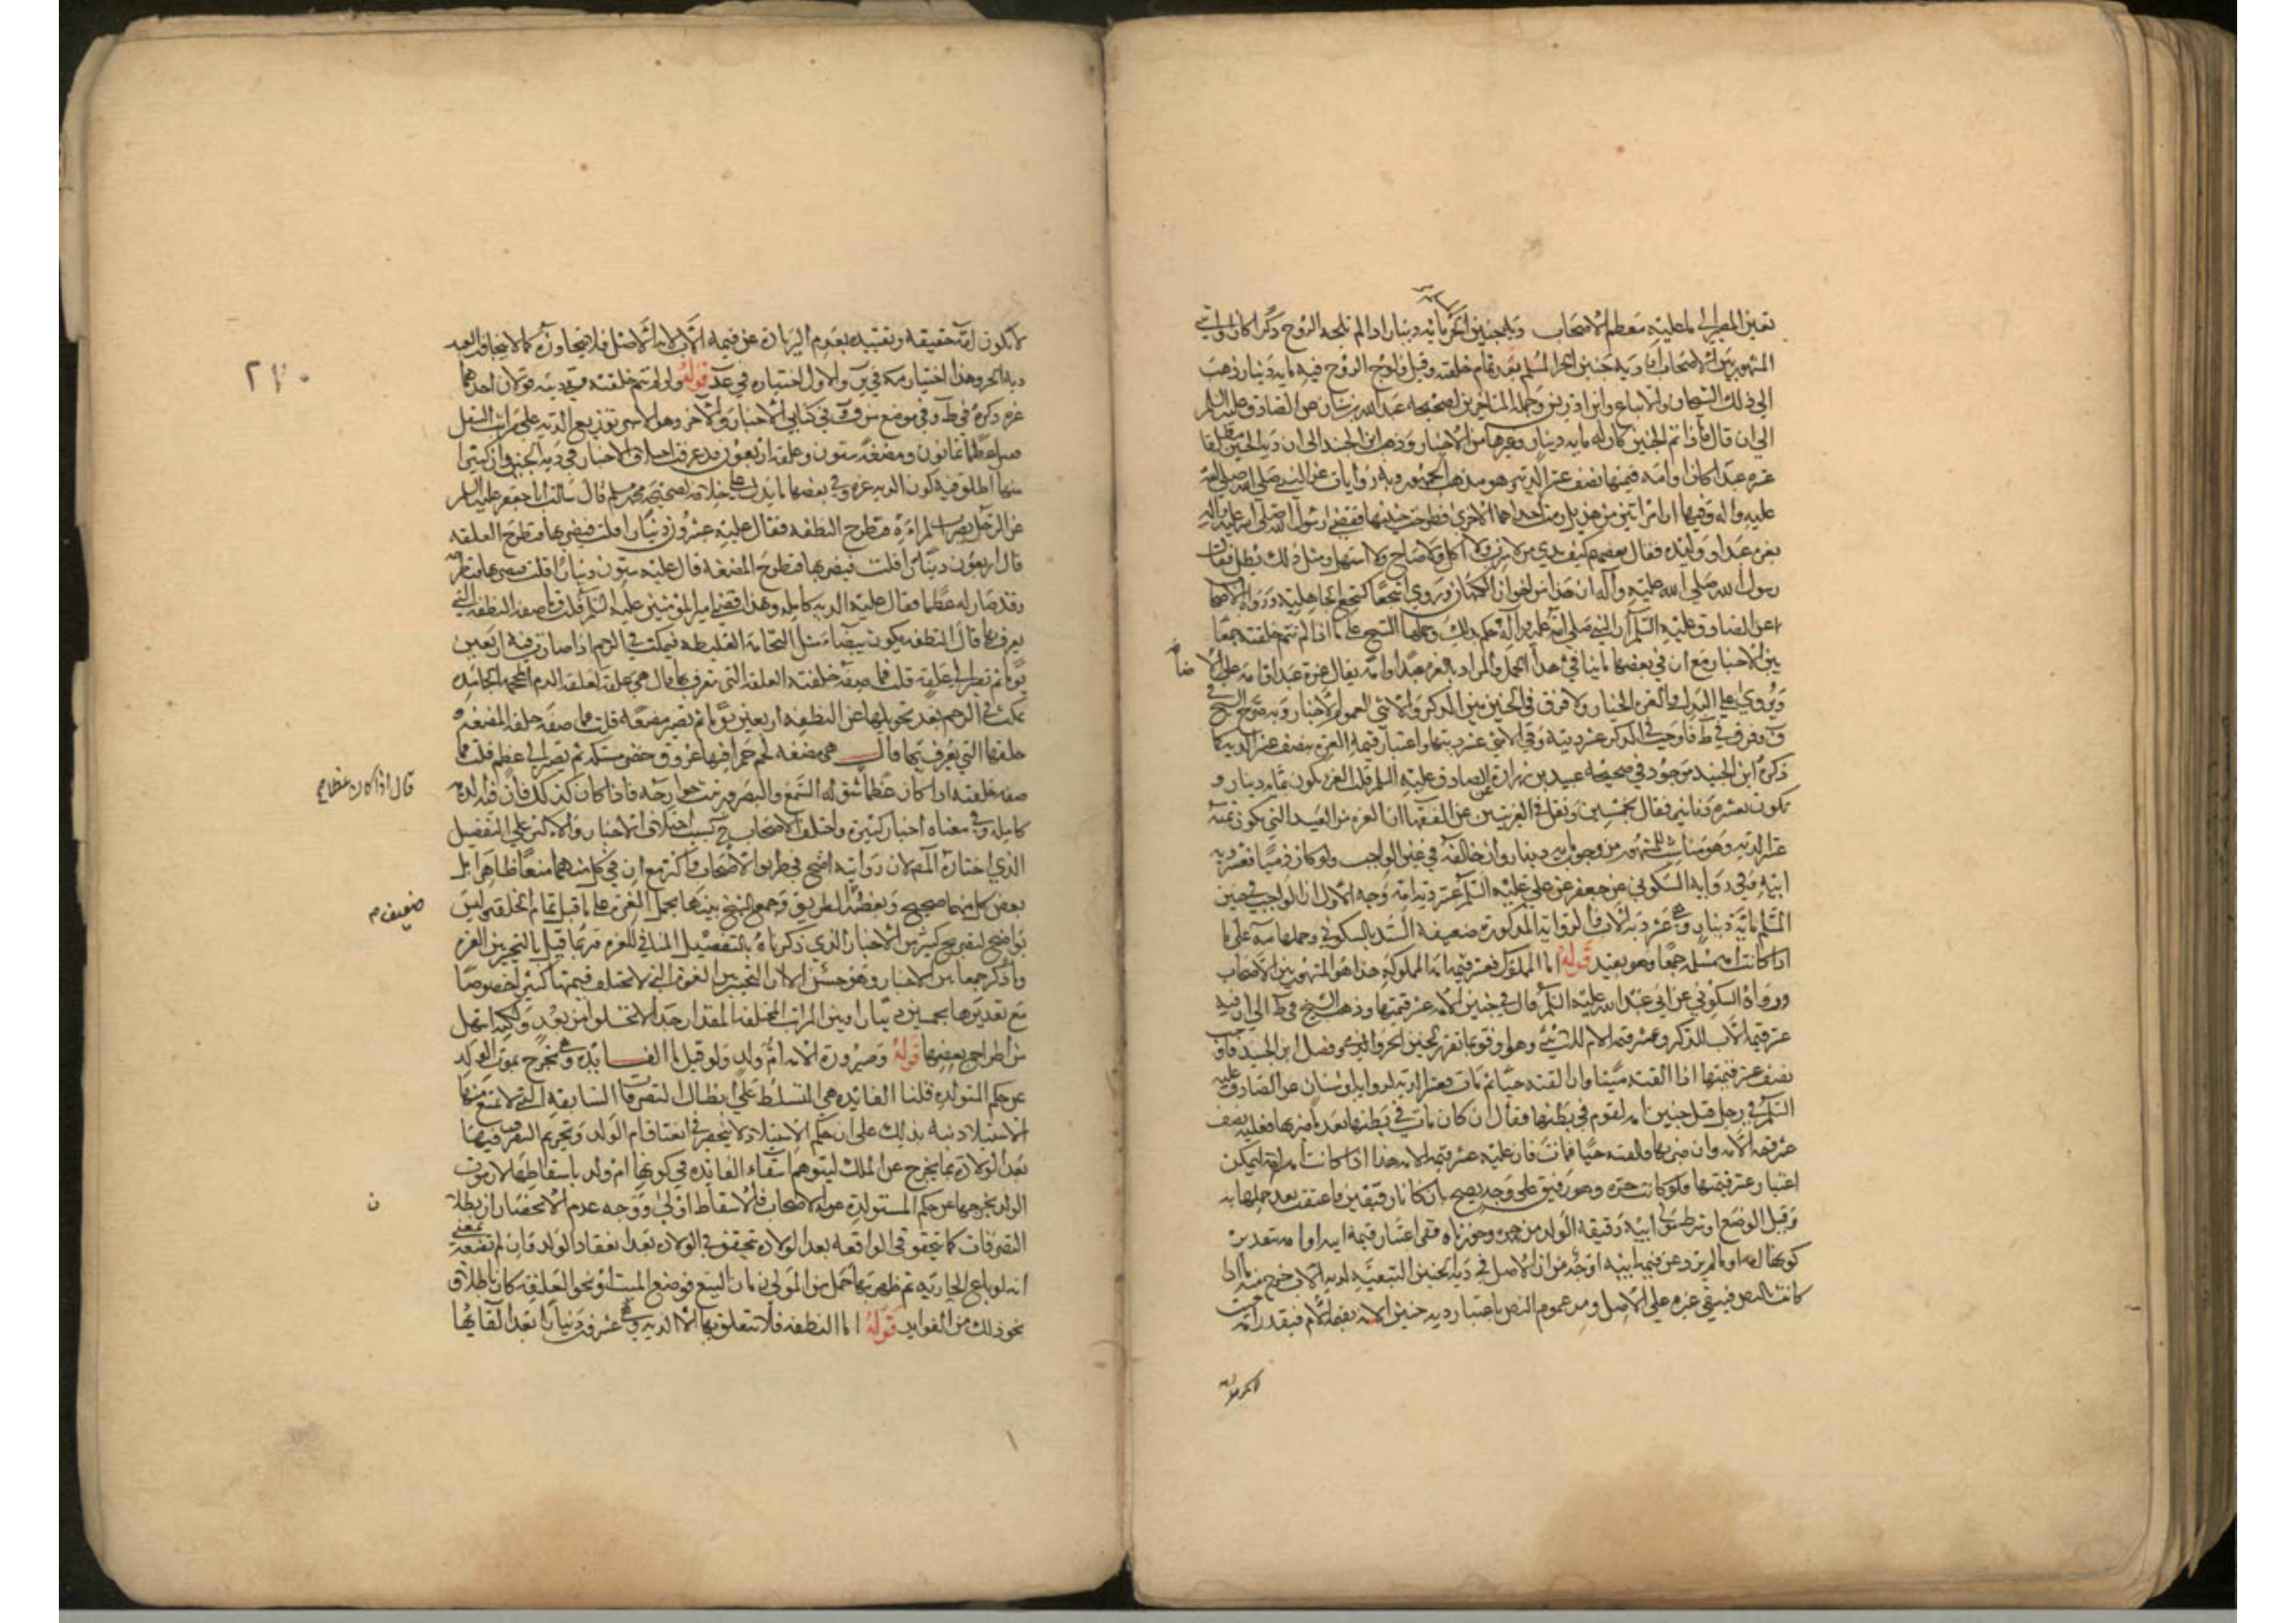 تعين المصير الى ما عليه معظم الاصحاب وفي الجنين الحر مائة دينار اذا لم تلجه الروح ذكرا كان او انثى
المشهور بين الاصحاب ان دية جنين الحر المسلم بعد تمام خلقته وقبل ولوج الروح فيه مائة دينار ذهب
الى ذلك الشيخان والاتباع وابن ادريس وجملة المتاخرين لصحيحة عبد الله بن سنان عن الصادق عليه السلم
الى ان قال فاذا تم الجنين كان له مائة دينار وغيرها من الاخبار وذهب ابن الجنيد الى ان دية الجنين مطلقا
غرة عبدا كان او امة قيمتها نصف عشر الدية وهو مذهب الجمهور وبه روايات عن النبي صلى الله
عليه واله وفيها ان امراتين من هذيل رمت احداهما الاخرى فطرحت جنينها فقضى رسول الله صلى الله عليه واله
بغرة عبد او وليدة فقال بعضهم كيف يدي من لا شرب ولا اكل ولا صاح ولا استهل ومثل ذلك يطل فقال
رسول الله صلى الله عليه واله ان هذا من اخوان الكهان وروي اسجعا كسجع الجاهلية ورواه الاصحاب
عن الصادق عليه السلم ان النبي صلى الله عليه واله حكم بذلك وحملها الشيخ على ما اذا لم تتم خلقته جمعا
بين الاخبار مع ان في بعضها ما ينافي هذا الحمل والمراد بالغرة عبد او امة يقال غرة عبد او امة على الاضافة
ويروى على البدل والغرة الخيار ولا فرق في الجنين بين الذكر والانثى لعموم الاخبار وبه صرح الشيخ في
ف وفرق في ط فاوجب في الذكر عشر ديته وفي الانثى عشر ديتها واعتبار قيمة الغرة بنصف عشر الدية كما
ذكره ابن الجنيد موجود في صحيحة عبيد بن زرارة عن الصادق عليه السلم قلت الغرة تكون بمائة دينار و
تكون بعشرة دنانير فقال بخمسين ونقل في الغريبين عن الفقهاء ان الغرة من العبيد الذي يكون ثمنه
عشر الدية وهو مناسب للمشهور من وجوب مائة دينار وان خالفه في عين الواجب ولو كان ذميا فعشر دية
ابيه وفي رواية السكوني عن جعفر عن علي عليه السلم عشر دية امه وجه الاول ان الواجب في جنين
المسلم مائة دينار وهي عشر دية الاب فالرواية المذكورة ضعيفة السند بالسكوني وحملها على ما
اذا كانت امه مسلمة جمعا وهو بعيد قوله اما المملوك فعشر قيمة امه المملوكة هذا هو المشهور بين الاصحاب
ورواه السكوني عن ابي عبد الله عليه السلم قال في جنين الامة عشر قيمتها وذهب الشيخ في ط الى ان فيه
عشر قيمة الاب للذكر وعشر قيمة الام للانثى
نصف عشر قيمتها اذا القته ميتا وان القته حيا ثم مات فعشر الدية لرواية ابن سنان عن الصادق عليه
السلم في رجل قتل جنين امة لقوم في بطنها فقال ان كان مات في بطنها بعد ما ضربها فعليه نصف
عشر قيمة الامة وان ضربها فالقته حيا فمات فان عليه عشر قيمة الامة هذا اذا كانت امه امة ليمكن
اعتبار عشر قيمتها فلو كانت حرة وهو رقيق على وجه يصح بان كانا رقيقين فاعتقت بعد حملها به
وقبل الوضع او شرط مولى ابيه رقية الولد من حرة وجوزناه ففي اعتبار قيمة ابيه او امه بتقدير
كونها امة او بالمرية وعن قيمة ابيه اوجه من ان الاصل في دية الجنين التبعية لدية الاب خرج منه ما اذا
كانت بالنص فيبقى غيره على الاصل ومن عموم النص باعتبار دية جنين الامة بقيمة الام فيقدر امه حيث
لا تكون امة حقيقة وتعتبر بعدم الزيادة عن قيمة الاب لانه الاصل فلا يتجاوزه كما لا يتجاوز العبد
دية الحر وهذا اختياره في ير والاول اختياره في عد قوله ولو لم تتم خلقته ففي ديته قولان احدهما
غرة ذكره في ط وفي موضع من ف وفي كتابي الاخبار والآخر وهو الاشهر توزيع الدية على مراتب النقل
ففيه عظما ثمانون ومضغة ستون وعلقة اربعون قد عرفت اختلاف الاخبار في دية الجنين وان كثيرا
منها اطلق فيه كون الدية غرة وفي بعضها ما يدل على خلافه لصحيحة محمد بن مسلم قال سالت ابا جعفر عليه السلم
عن الرجل يضرب المراءة فتطرح النطفة فقال عليه عشرون دينارا قلت فيضربها فتطرح العلقة
قال اربعون دينارا قلت فيضربها فتطرح المضغة قال عليه ستون دينارا قلت فيضربها فتطرحه
وقد صار له عظما فقال عليه الدية كاملة وهذا قضى امير المؤمنين عليه السلم قلت فما صفة النطفة التي
يعرف بها قال النطفة تكون بيضاء مثل النخامة الغليظة فيمكث في الرحم اذا صارت فيه اربعين
يوما ثم تصير الى علقة قلت فما صفة خلقة العلقة التي تعرف بها قال هي علقة كعلقة الدم المحجمة الجامدة
تمكث في الرحم بعد تحويلها عن النطفة اربعين يوما ثم تصير مضغة قلت فما صفة خلقة المضغة و
خلقها التي يعرف بها قال هي مضغة لحم حمراء فيها عروق خضر مشتبكة ثم تصير الى عظم قلت فما
صفة خلقته اذا كان عظما شق له السمع والبصر ورتبت جوارحه فاذا كان كذلك فان فيه الدية
كاملة وفي معناه اخبار كثيرة واختلف الاصحاب بحسب اختلاف الاخبار والاكثر على التفصيل
الذي اختاره المص لان روايته اصح في طريق الاصحاب واكثر مع ان في كل منهما منعا ظاهرا بل
بعض كل منهما صحيح وبعضه الطريق وجمع الشيخ بينها بحمل الغرة على ما قبل تمام الخلقة وليس
بواضح لتصريح كثير من الاخبار الذي ذكرناه بالتفصيل المنافي للغرة وربما قيل بالتخيير بين الغرة
وما ذكر جمعا بين الاخبار وهو حسن الا ان التخيير بين الغرة التي لا تختلف قيمتها كثيرا خصوصا
مع تقديرها بخمسين دينارا وبين المراتب المختلفة المقدار جدا لا تخلو من بعد ولكنه اسهل
من اطراح بعضها قوله وصيرورة الامة ام ولد ولو قيل ما الفائدة وهي تخرج بموت الولد
عن حكم المستولدة قلنا الفائدة هي التسلط على ابطال التصرفات السابقة التي لا تمنع منها
الاستيلاد نبه بذلك على ان حكم الاستيلاد لا ينحصر في انعتاقها من الولد وتحريم التصرف فيها
بعد الولادة بما يخرج عن الملك ليتوهم انتفاء الفائدة في كونها ام ولد باسقاطها لان موت
الولد يخرجها عن حكم المستولدة عند الاصحاب فالاسقاط اولى ووجه عدم الانحصار ان بطلان
التصرفات كما يتحقق في الواقعة بعد الولادة تحقق في الولادة بعد انعقاد الولد وان لم تضعه بمعنى
انه لو باع الجارية ثم ظهر بها حمل من المولى زمان البيع فوضع الميت او نحو العلقة كان باطلاق
نحو ذلك من الفوائد قوله اما النطفة فلا يتعلق بها الا الدية وهي عشرون دينارا بعد القائها
قال اذا كان عظما م
ضعيف م
ن
٢٧٠